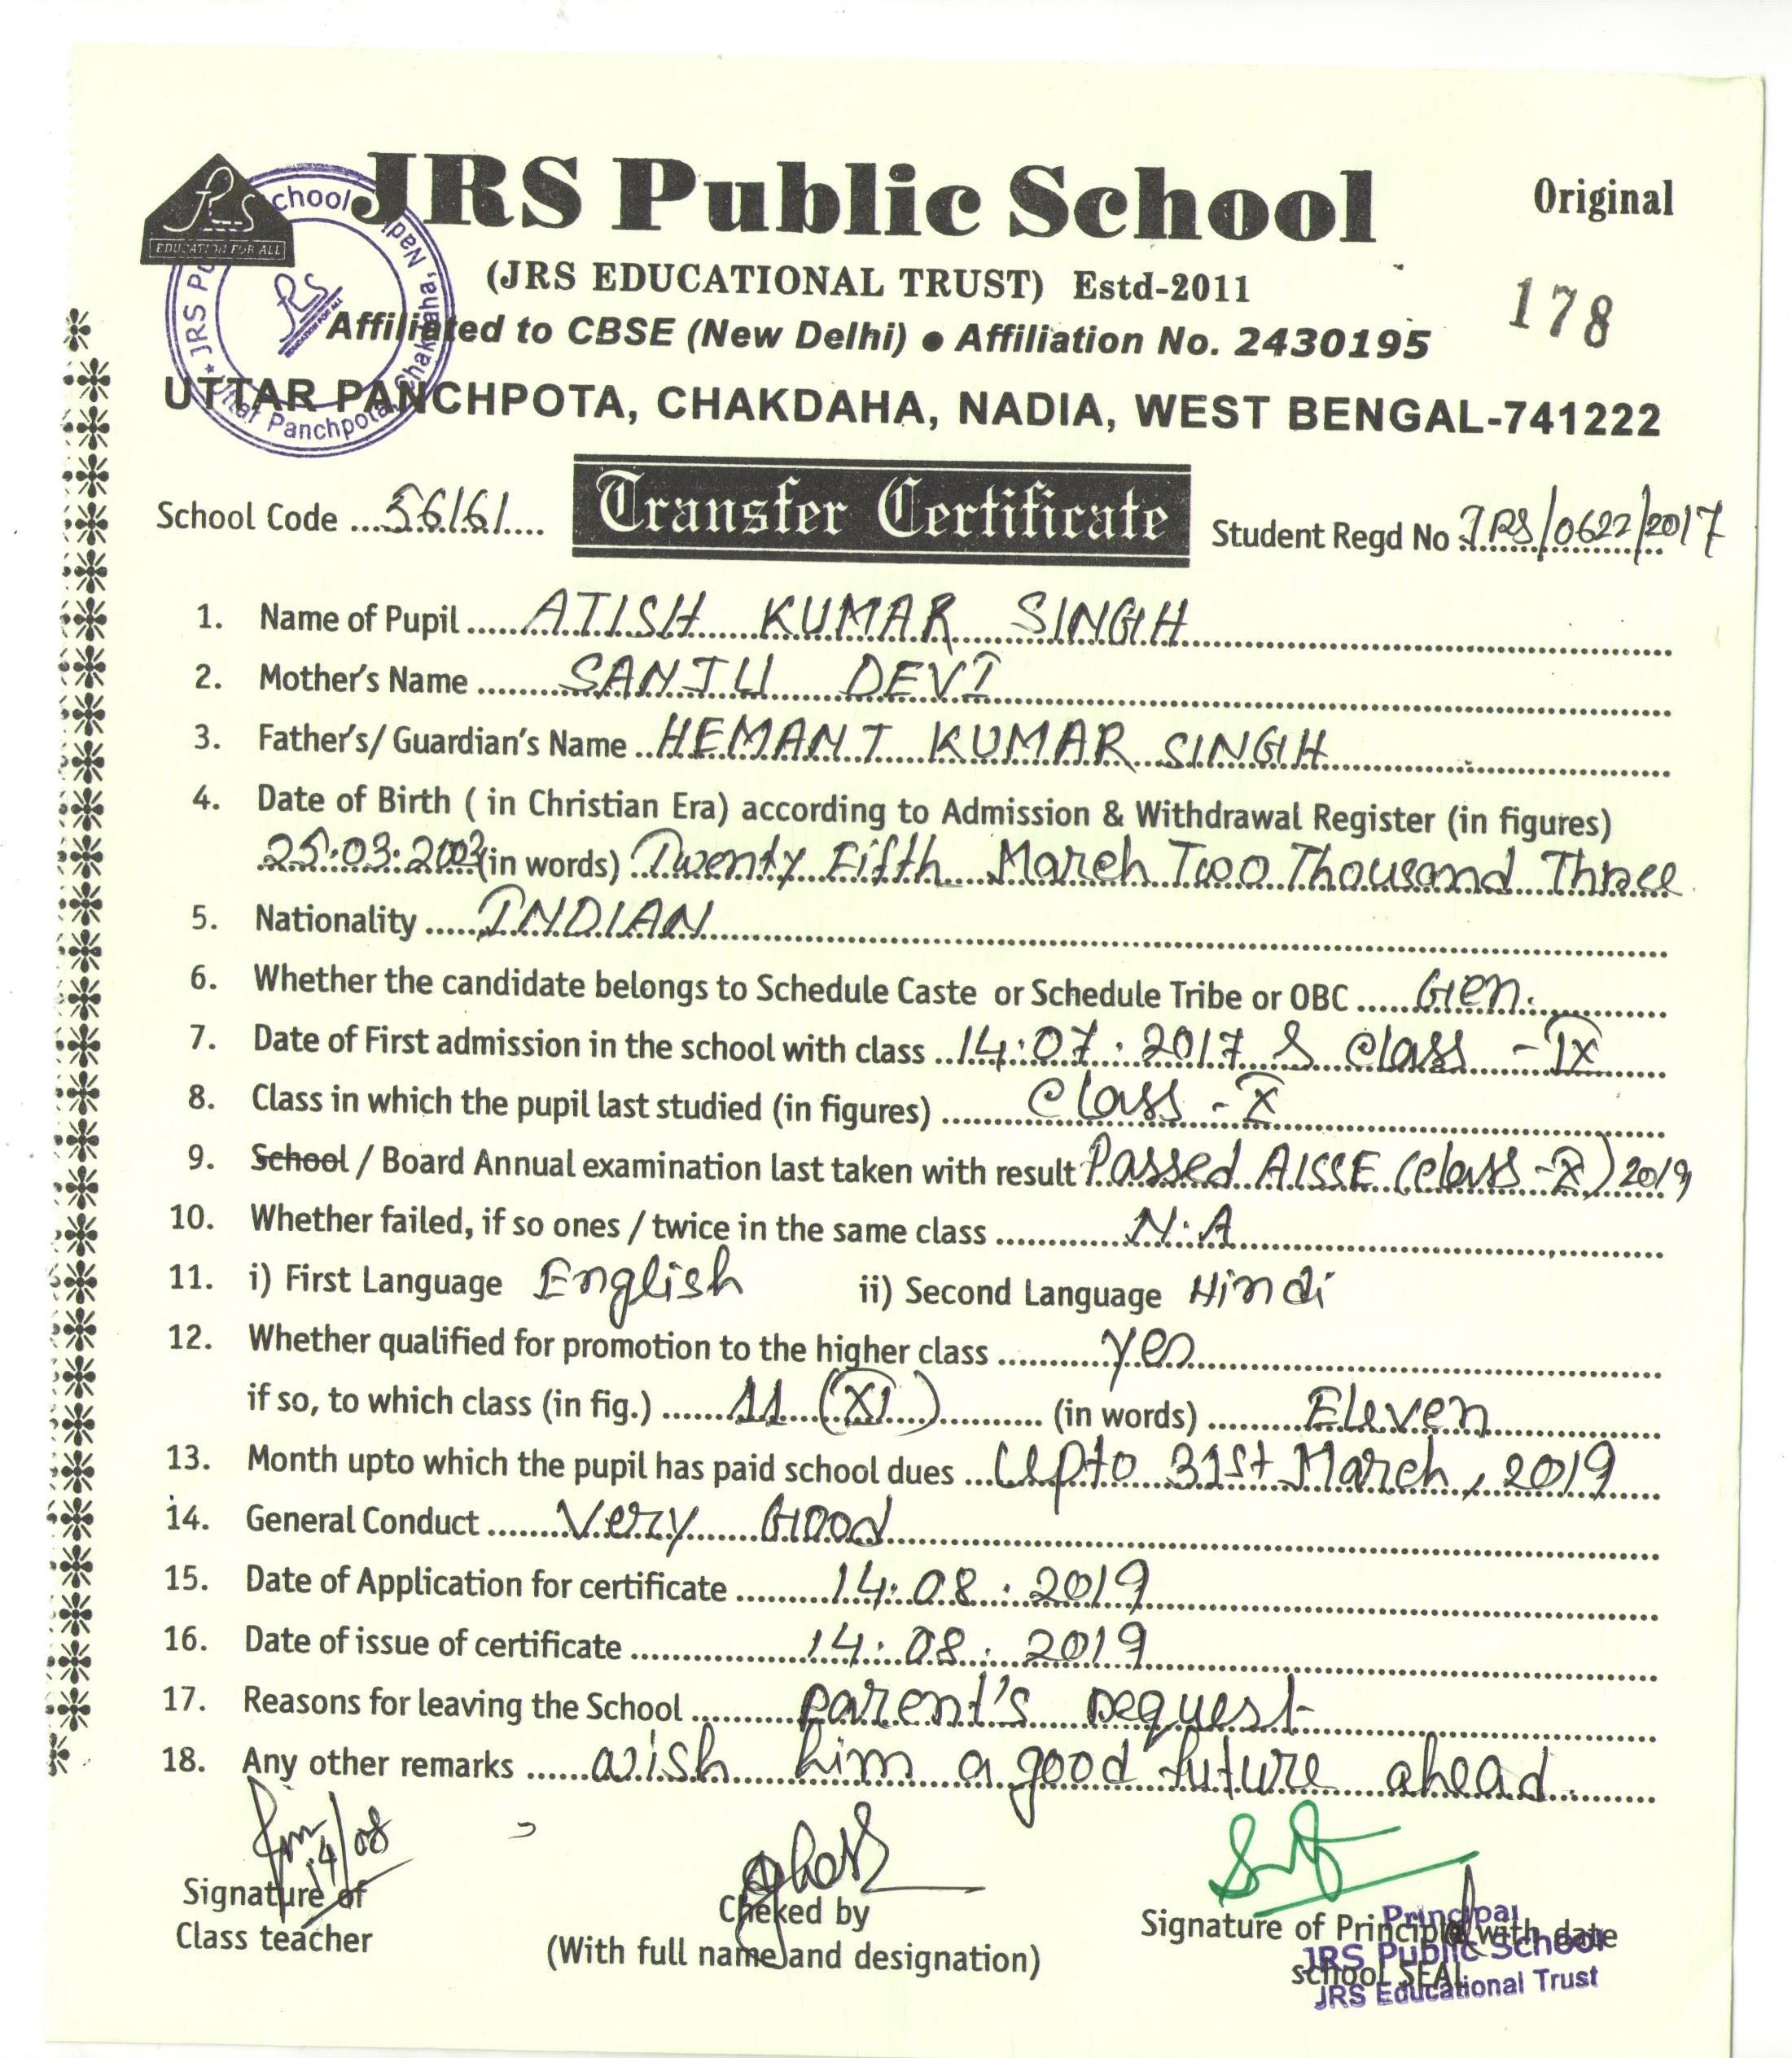 JRS Public School
Original
JRS
EDUCATION FOR ALL
(JRS EDUCATIONAL TRUST) Estd-2011
178
Affiliated to CBSE (New Delhi) ● Affiliation No. 2430195
UTTAR PANCHPOTA, CHAKDAHA, NADIA, WEST BENGAL-741222
School Code ....56161.... Transfer Certificate Student Regd No JRS/0622/2017
1. Name of Pupil ..... ATISH KUMAR SINGH
2. Mother's Name ........ SANJU DEVI
3. Father's/ Guardian's Name .. HEMANT KUMAR SINGH
4. Date of Birth ( in Christian Era) according to Admission & Withdrawal Register (in figures)
25:03:2003 (in words) Twenty Fifth March Two Thousand Three
5. Nationality ..... INDIAN
6. Whether the candidate belongs to Schedule Caste or Schedule Tribe or OBC ..... Gen.
7. Date of First admission in the school with class .. 14:07:2017 & Class - IX
8. Class in which the pupil last studied (in figures) ........ Class - X
9. School / Board Annual examination last taken with result Passed AISSE (Class - X) 2019
10. Whether failed, if so ones / twice in the same class ............ N.A
11. i) First Language English ii) Second Language Hindi
12. Whether qualified for promotion to the higher class .......... yes
if so, to which class (in fig.) ...... 11 (XI) .......... (in words) ........ Eleven
13. Month upto which the pupil has paid school dues ... Upto 31st March, 2019
14. General Conduct ....... Very Good
15. Date of Application for certificate ......... 14:08:2019
16. Date of issue of certificate ................ 14:08:2019
17. Reasons for leaving the School .......... parent's request
18. Any other remarks ...... wish him a good future ahead.
14/08
Signature of
Class teacher
Cheked by
(With full name and designation)
Signature of Principle with date
school SEAL
Principal
JRS Public School
JRS Educational Trust